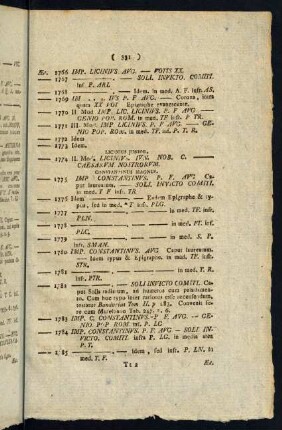 ( 331 )
Ær. 1766 IMP. LICINIVS. AVG. — VOTIS XX.
— — 1767 — — — — SOLI. INVICTO. COMITI.
inf. P. ARL
— — 1768 — — — — Idem. in med. A. F. infr. AR.
— — 1769 IM . . . IVS P F AVG. — Corona, intra
quam XX VOT Epigraphe evanescente.
— — 1770 II Mod IMP. LIC. LICINIVS. P. F AVG. —
GENIO POP. ROM. in med. TF infr. P TR.
— — 1771 III. Mod. IMP. LICINIVS. P. F AVG — GE-
NIO POP. ROM. in med. TF. ad. P. T. R.
— — 1772 Idem.
— — 1773 Idem.
LICINIUS JUNIOR.
— — 1774 II. Mod. LICINIVS. IVN. NOB. C. —
CAESARVM NOSTRORVM.
CONSTANTINUS MAGNUS.
— — 1775 IMP CONSTANTINVS, PF. F. AVG Ca-
put laureatum. — SOLI. INVICTO COMITI.
in med. T F infr. TR
— — 1776 Idem — — — Eadem Epigraphe & ty-
pus, sed in med. *T infr. PLG.
— — 1777 — — — — — — in med. TF. infr.
PLN.
— — 1778 — — — — — — in med. PT. infr.
PLC.
— — 1779 — — — — — — in med. S. P.
infr. SMAN.
— — 1780 IMP. CONSTANTINVS. AVG Caput laureatum.
— Idem typus & Epigraphe. in med. TF. infr.
STR.
— — — — — — — — in med. T. R.
infr. PTR.
— — 1782 — — — — SOLI INVICTO COMITI. Ca-
put Solis radiatum, ad humeros cum paludamen-
to.
— — 1783 IMP. C. CONSTANTINVS. P F. AVG. — GE-
NIO. POP ROM. inf. P. LC
— — 1784 IMP. CONSTANTINVS. P F. AVG — SOLI IN-
VICTO. COMITI. infra P. LC, in medio
P. T.
— — 1785 — — — Idem, sed infr. P. LN. in
med. T. F.
T t 2 Ær.